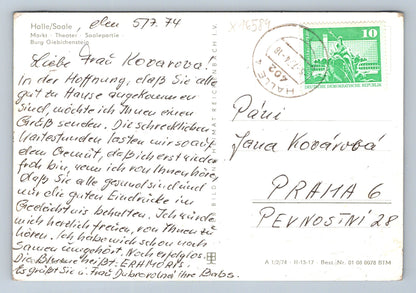 Halle/Saale
Markt - Theater - Saalepartie -
Burg Giebichenstein
, den 5/7.74
Liebe Frau Kovarova!
In der Hoffnung, daß Sie alle
gut zu Hause angekommen
sind, möchte ich Ihnen einen
Gruß senden. Die schrecklichen
Wartestunden lasten mir so auf
dem Gemüt, daß ich erst wieder
froh bin, wenn ich von Ihnen höre,
daß Sie alle gesund sind und
nur die guten Eindrücke im
Gedächtnis behalten. Ich würde
mich herzlich freuen, von Ihnen zu
hören. Ich habe mich schon nach
Samen umgehört. Noch erfolglos.
Die Blume heißt: 
Es grüßt Sie u. Frau Dubarovna Ihre Babs.
BILD UND HEIMAT REICHENBACH I. V.
X-16589
HALLE 1
402
10
DEUTSCHE DEMOKRATISCHE REPUBLIK
Páni
Jana Kovárová
PRAHA 6
PEVNOSTNÍ 28
A 1/2/74 - II-13-17 - Best.-Nr. 01 08 0078 BTM